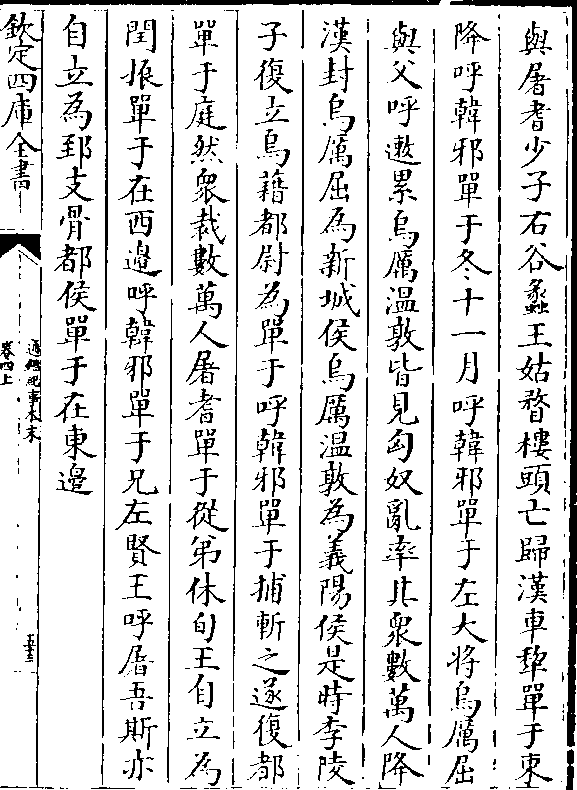 與屠耆少子右谷蠡王姑瞀樓頭亡歸漢車犂單于東
降呼韓邪單于冬十一月呼韓邪單于左大將烏厲屈
與父呼遬累烏厲温敦皆見匈奴亂率其衆數萬人降
漢封烏厲屈為新城侯烏厲温敦為義陽侯是時李陵
子復立烏藉都尉為單于呼韓邪單于捕斬之遂復都
單于庭然衆裁數萬人屠耆單于從弟休旬王自立為
閏振單于在西邉呼韓邪單于兄左賢王呼屠吾斯亦
自立為郅支骨都侯單于在東邉
欽定四庫全書
通鑑紀事本末
卷四上